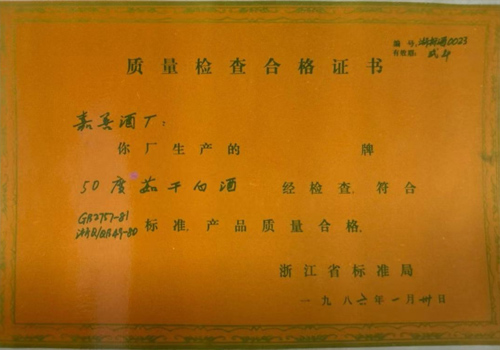 编号:浙标酒0023
有效期:
质量检查合格证书
嘉善酒厂:
你厂生产的 牌
50度茄干白酒 经检查,符合
GB2757-81
浙Q/QB49-80 标准,产品质量合格。
浙江省标准局
一九八六年一月卅日